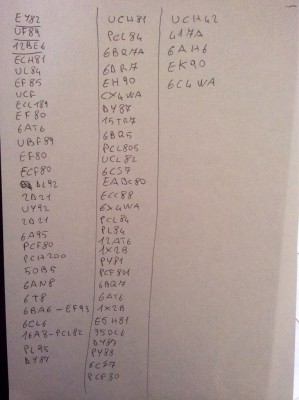 EY82
UF89
12BE6
ECH81
UL84
EF85
UCF
ECL189
EF80
6AT6
UBF89
EF80
ECF80
DL92
2D21
UY92
2D21
6A95
PCF80
PCH200
50B5
6AN8
6T8
6BA6-EF93
6CL6
16A8-PCL82
PL95
DY87
UCH81
PCL84
6BQ7A
6DR7
EH90
CX4WA
DY87
15TR7
6BQ5
PCL805
UCL82
6CS7
EABC80
ECC88
6X4WA
PCL84
PL84
12AT6
1X2B
PY81
PCF801
6BQ7
6AT6
1X2B
ECH81
35DL6
DY87
PY88
6CS7
PCF80
UCH42
417A
6AH6
EK90
6C4WA